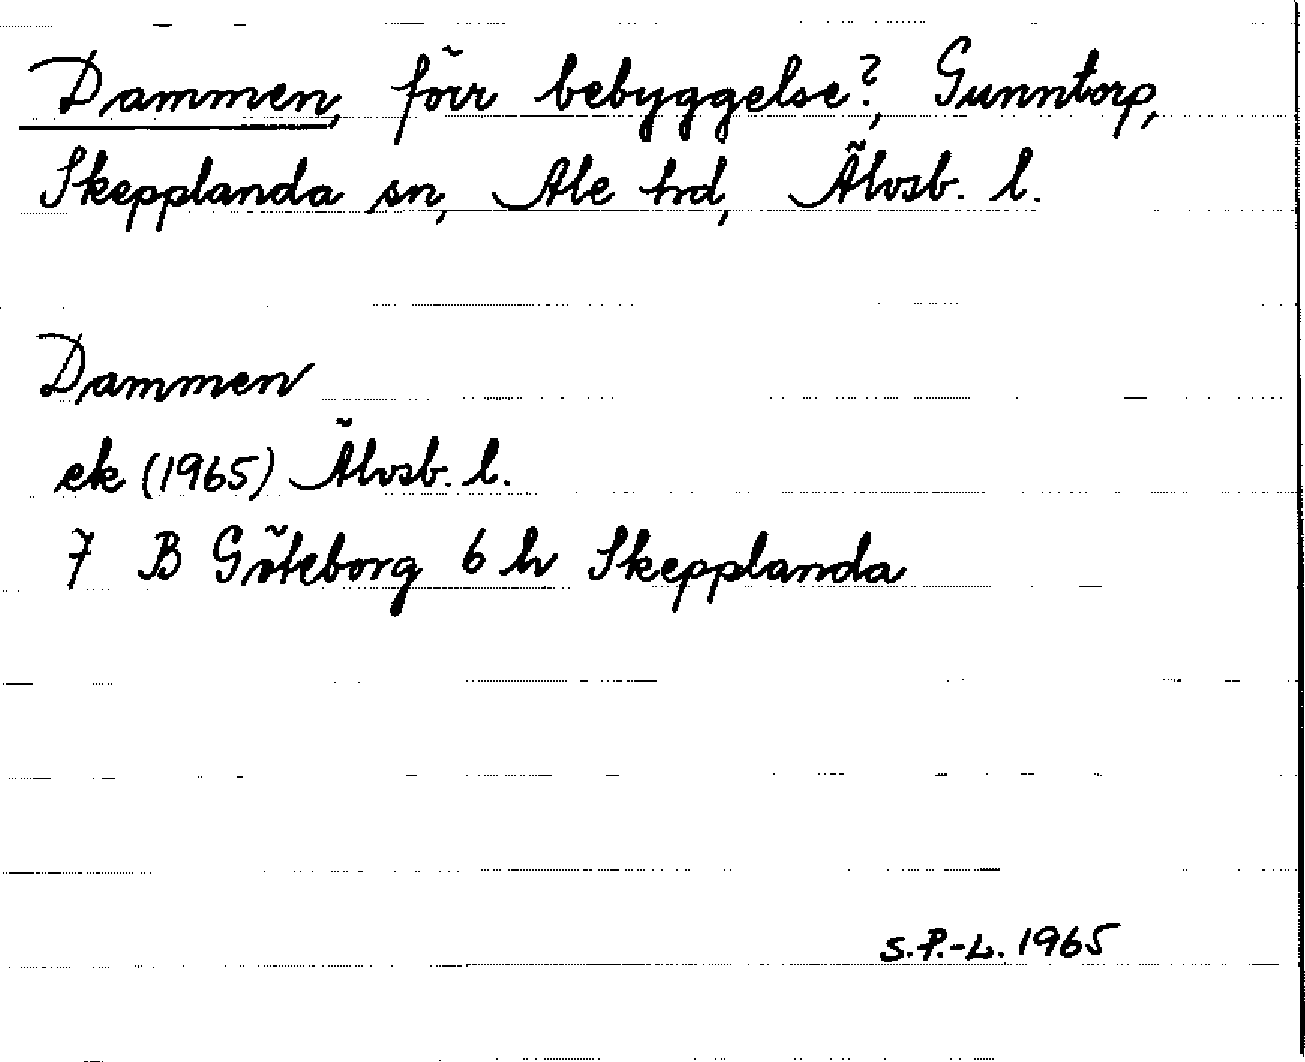 Dammen, förr bebyggelse?, Gunntorp,
Skepplanda sn, Ale hd, Älvsb. l.
Dammen
ek (1965) Älvsb. l.
7 B Göteborg 6 h Skepplanda
S.P.-L. 1965